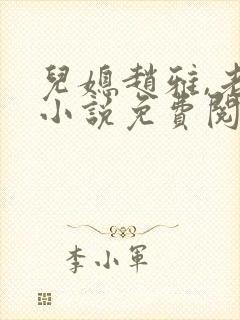 兒媳趙雅,老
小說免費閱
李小軍